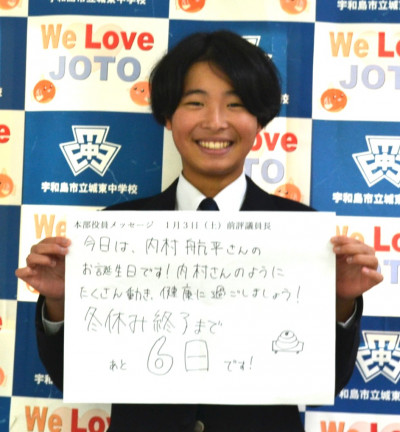 宇和島市立城東中学校
We Love
JOTO
We Love
JOTO
宇和島市立城東中学校
宇和島市立城東中学校
本部役員メッセージ 1月3日(土)前評議員長
今日は、内村航平さんの
お誕生日です!内村さんのように
たくさん動き、健康に過ごしましょう!
冬休み終了まで
あと 6日 です!
We Love
We Love
JOTO
宇和島市立城東中学校
We Love
We Love